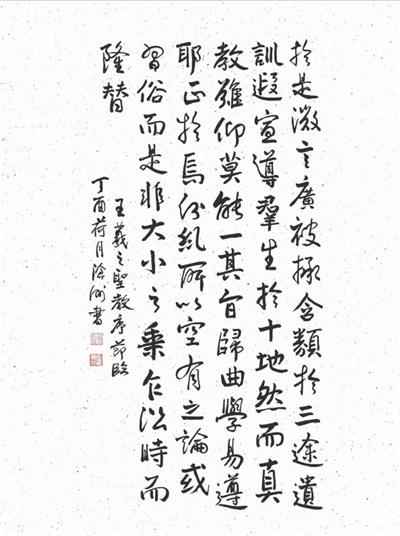 於是微言廣被拯含類於三途遺
訓遐宣導羣生於十地然而真
教難仰莫能一其旨歸曲學易遵
耶正於焉紛糺所以空有之論或
習俗而是非大小之乘乍沿時而
隆替
王羲之聖教序節臨
丁酉荷月書